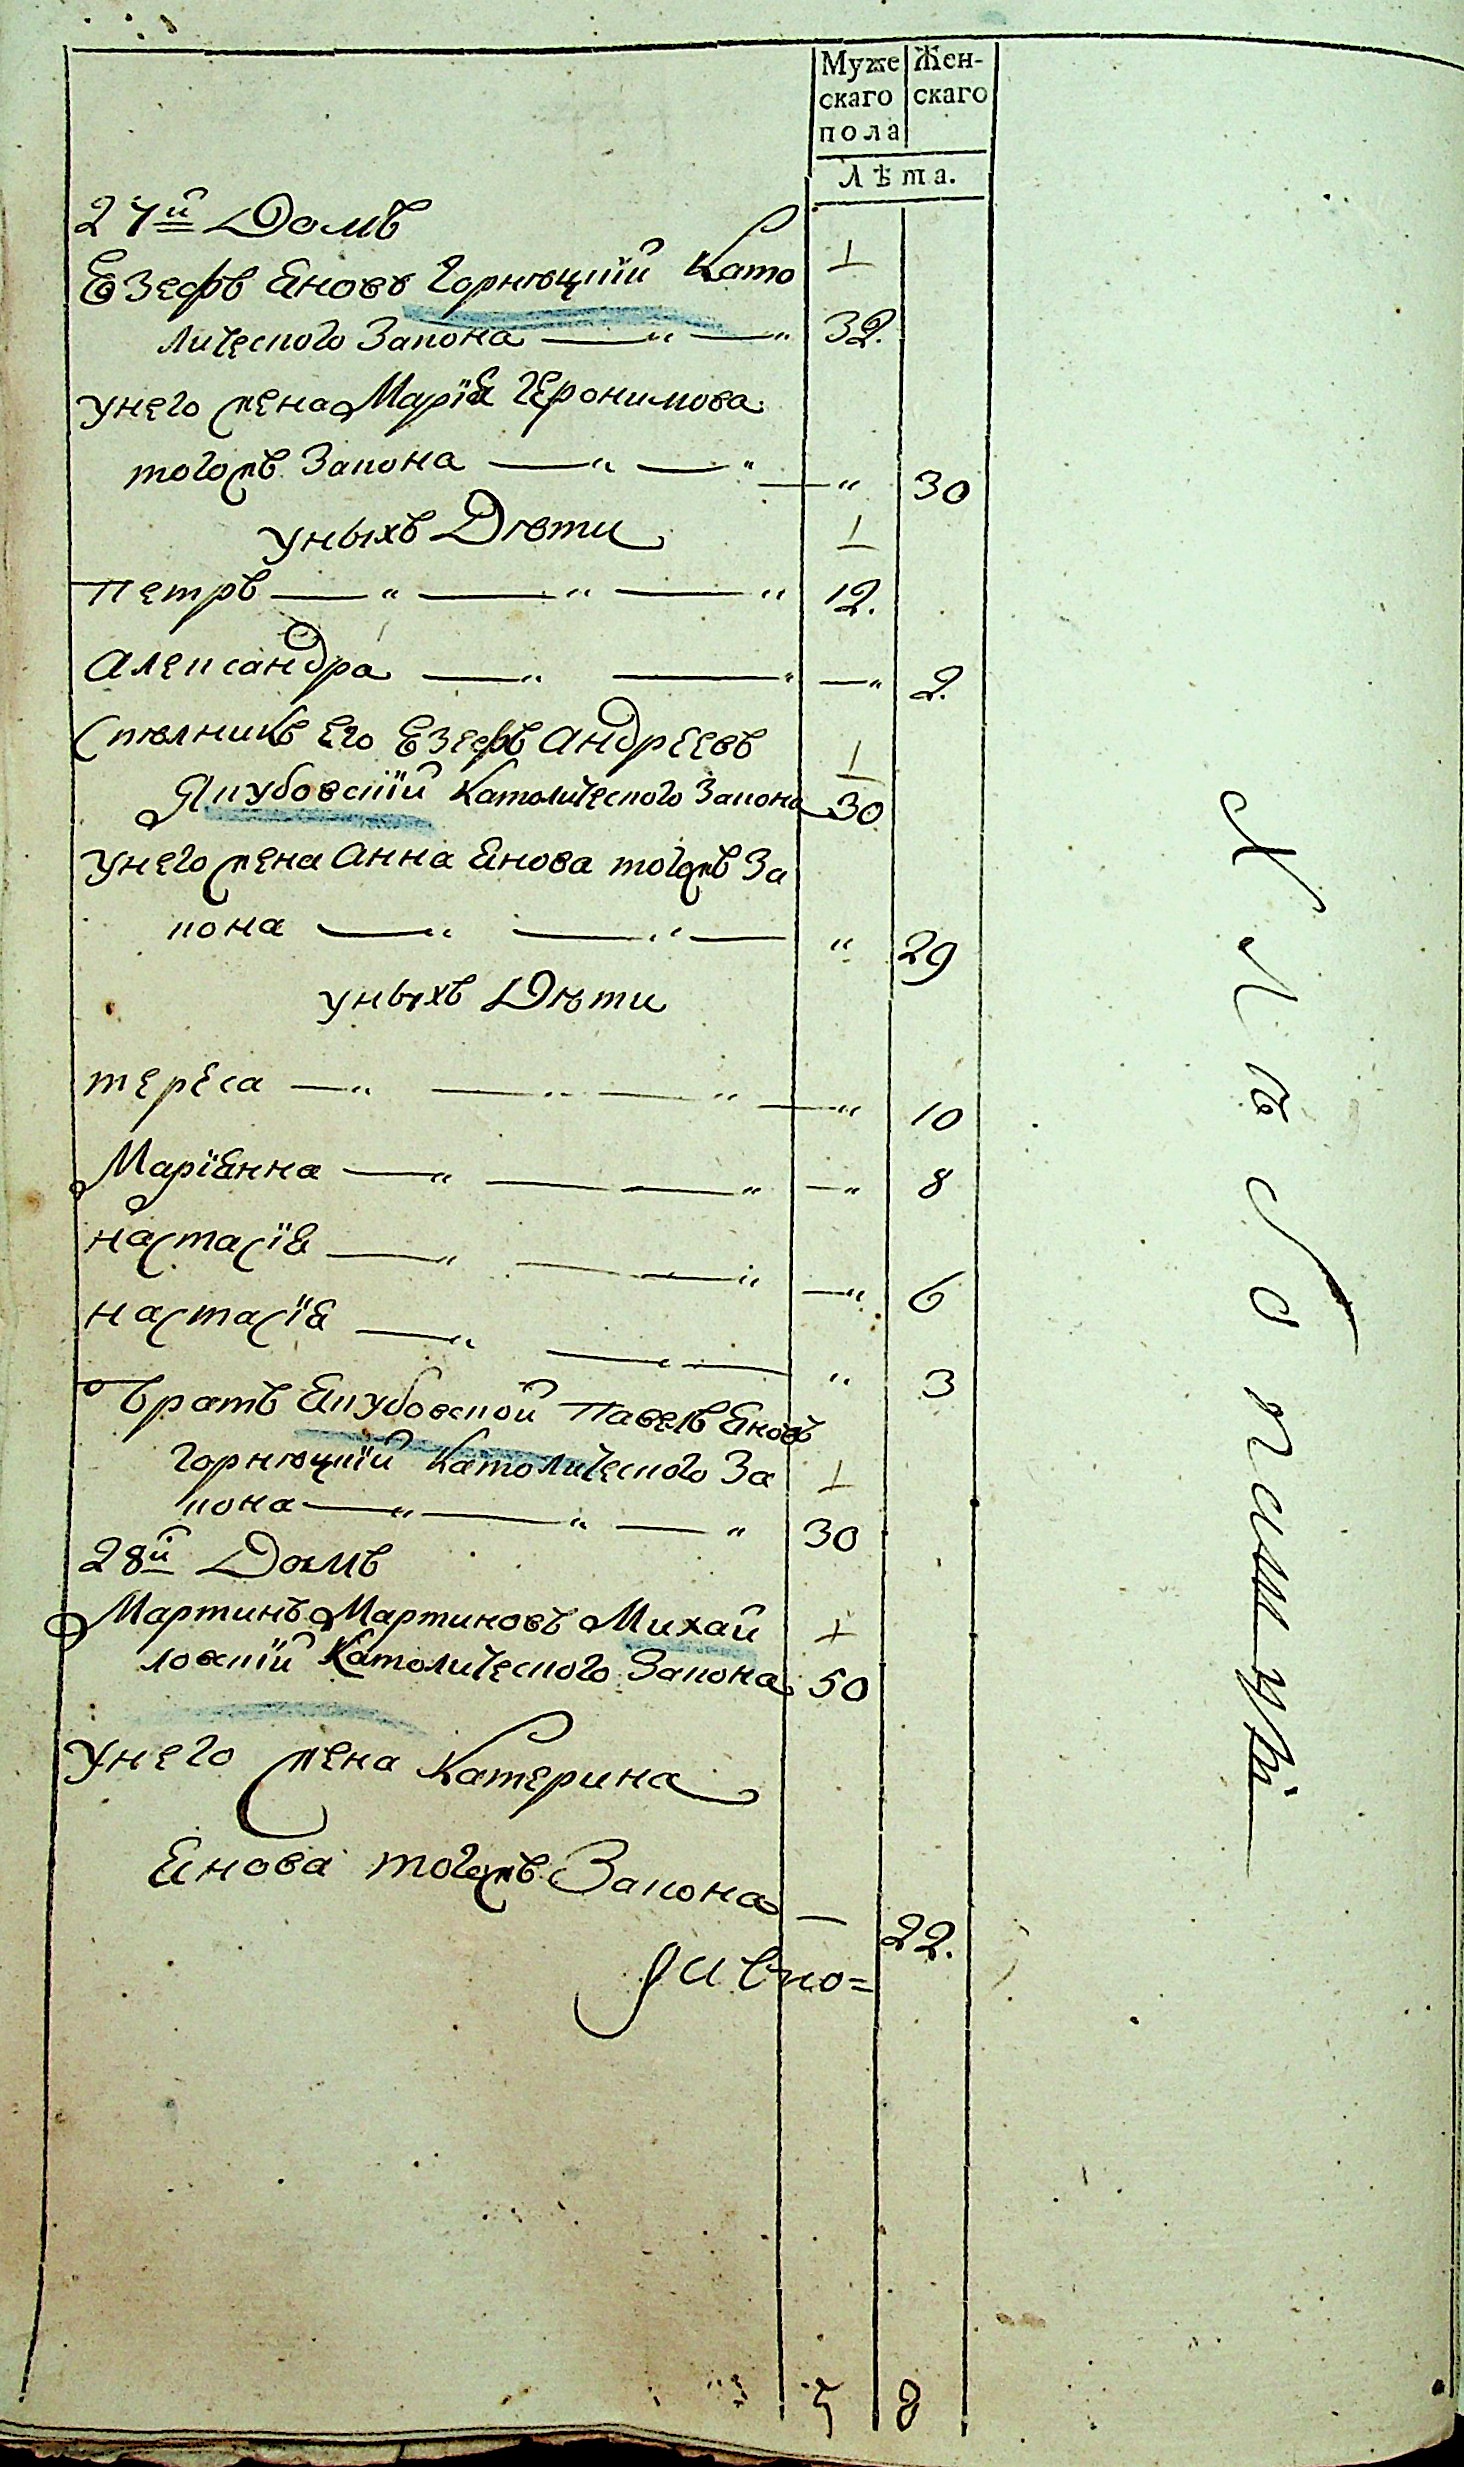 Муже Жен-
скаго скаго
пола
Лѣта.
27й Домъ
Езефъ Яновъ Горнѣцкій Като
1
лического Закона 32.
у него жена Марія Геронимова
тогожъ Закона 30
у ныхъ Дѣти
1
Петръ 12.
Александра 2.
Спѣлникъ его Езефъ Андрѣевъ
1
Якубовскій Католического Закона 30
у него жена Анна Янова тогожъ За
кона 29
у ныхъ Дѣти
Тереса 10
Маріянна 8
Настасія 6
Настасія 3
Братъ Якубовской Павелъ Яновъ
Горнѣцкій Католического За
1
кона 30
28й Домъ
Мартинъ Мартиновъ Михай
1
ловскій Католического Закона 50
у него жена Катерина
Янова тогожъ Закона 22.
5 8